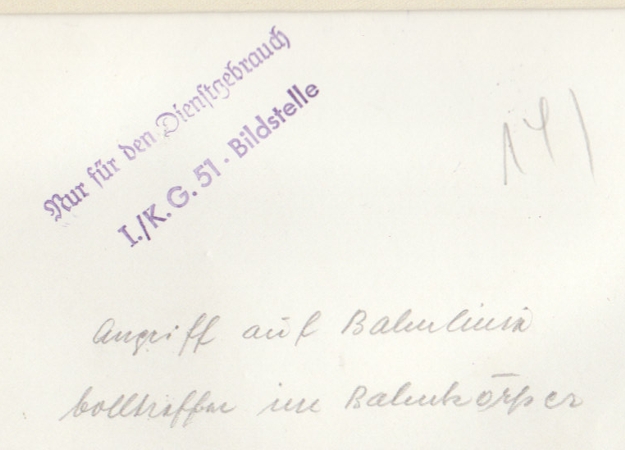 Nur für den Dienstgebrauch
I./K.G. 51 · Bildstelle
141
Angriff auf Bahnlinie
Volltreffer im Bahnkörper